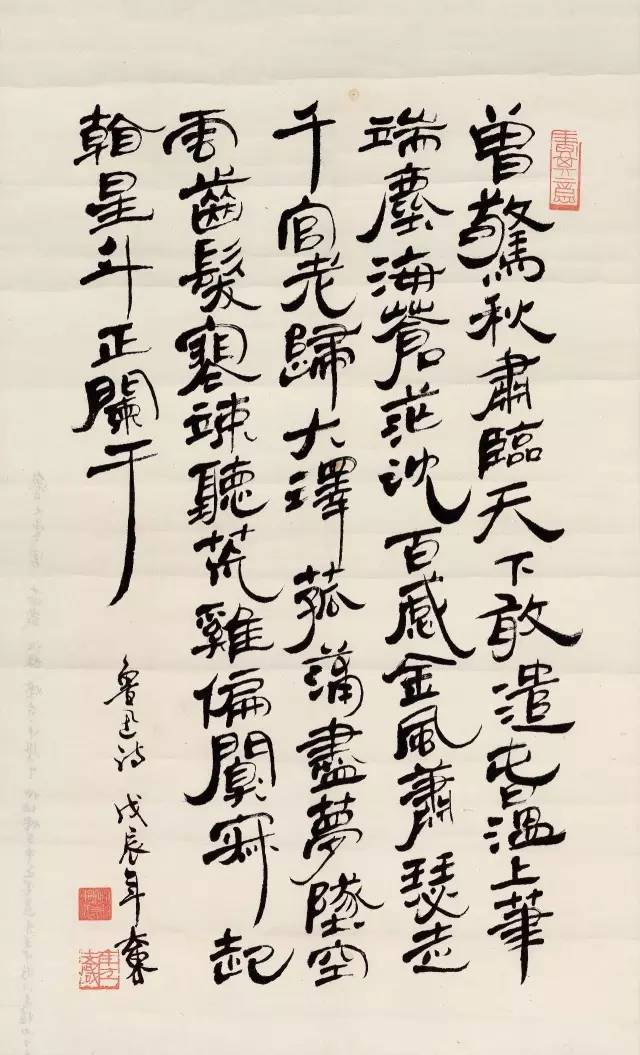 曾驚秋肅臨天下敢遣春溫上筆
端塵海蒼茫沈百感金風蕭瑟走
千官老歸大澤菰蒲盡夢墜空
雲齒髮寒竦聽荒雞偏闃寂起
看星斗正闌干
魯迅詩 戊辰年